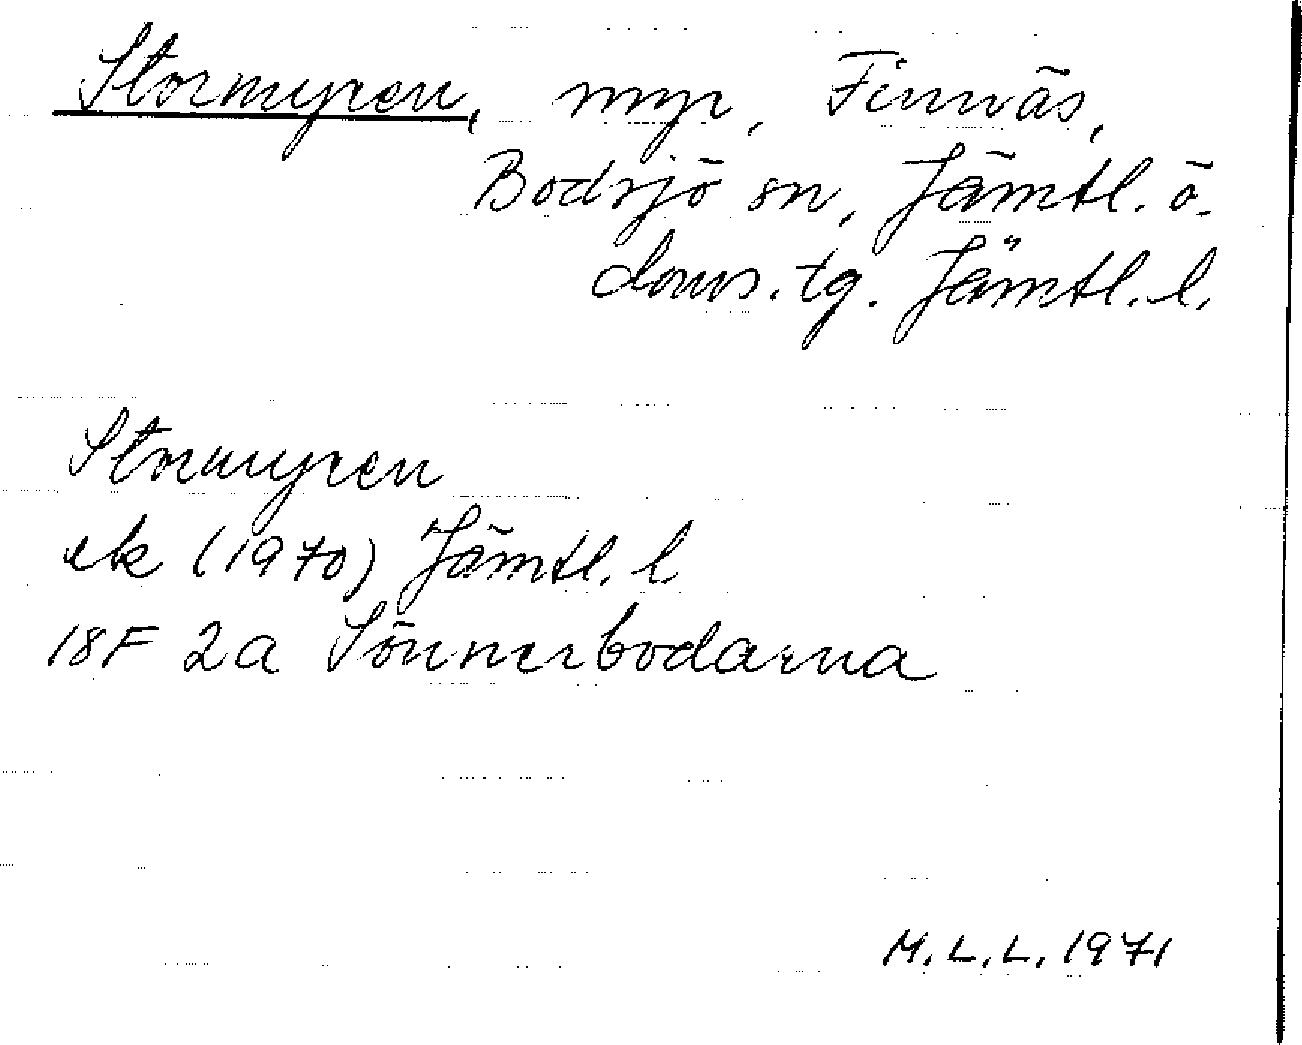 Stormyren, myr, Finnäs,
Bodsjö sn, Jämtl. ö.
doms.tg. Jämtl. l.
Stormyren
ek (1970) Jämtl. l
18F 2a Sönnerbodarna
M.L.L. 1971